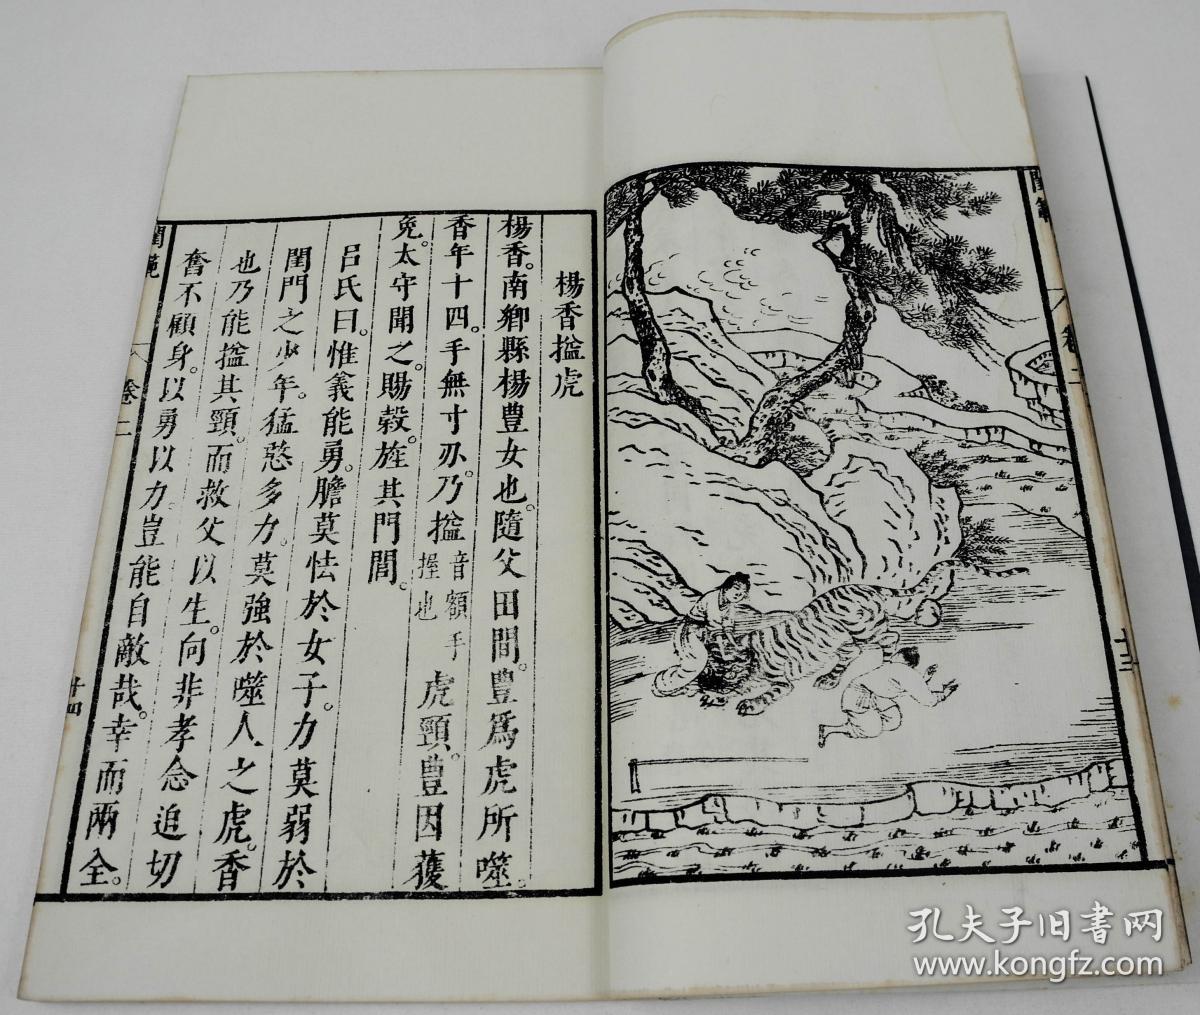 閨範
卷二
十三
楊香搤虎
楊香。南鄉縣楊豐女也。隨父田間。豐爲虎所噬。
香年十四。手無寸刃。乃搤音額手握也虎頸。豐因獲
免。太守聞之。賜穀。旌其門閭。
呂氏曰。惟義能勇。膽莫怯於女子。力莫弱於
閨門之少年。猛憨多力。莫強於噬人之虎。香
也乃能搤其頸。而救父以生。向非孝念追切
奮不顧身。以勇以力。豈能自敵哉。幸而兩全。
閨範
卷二
十四
孔夫子旧书网
www.kongfz.com